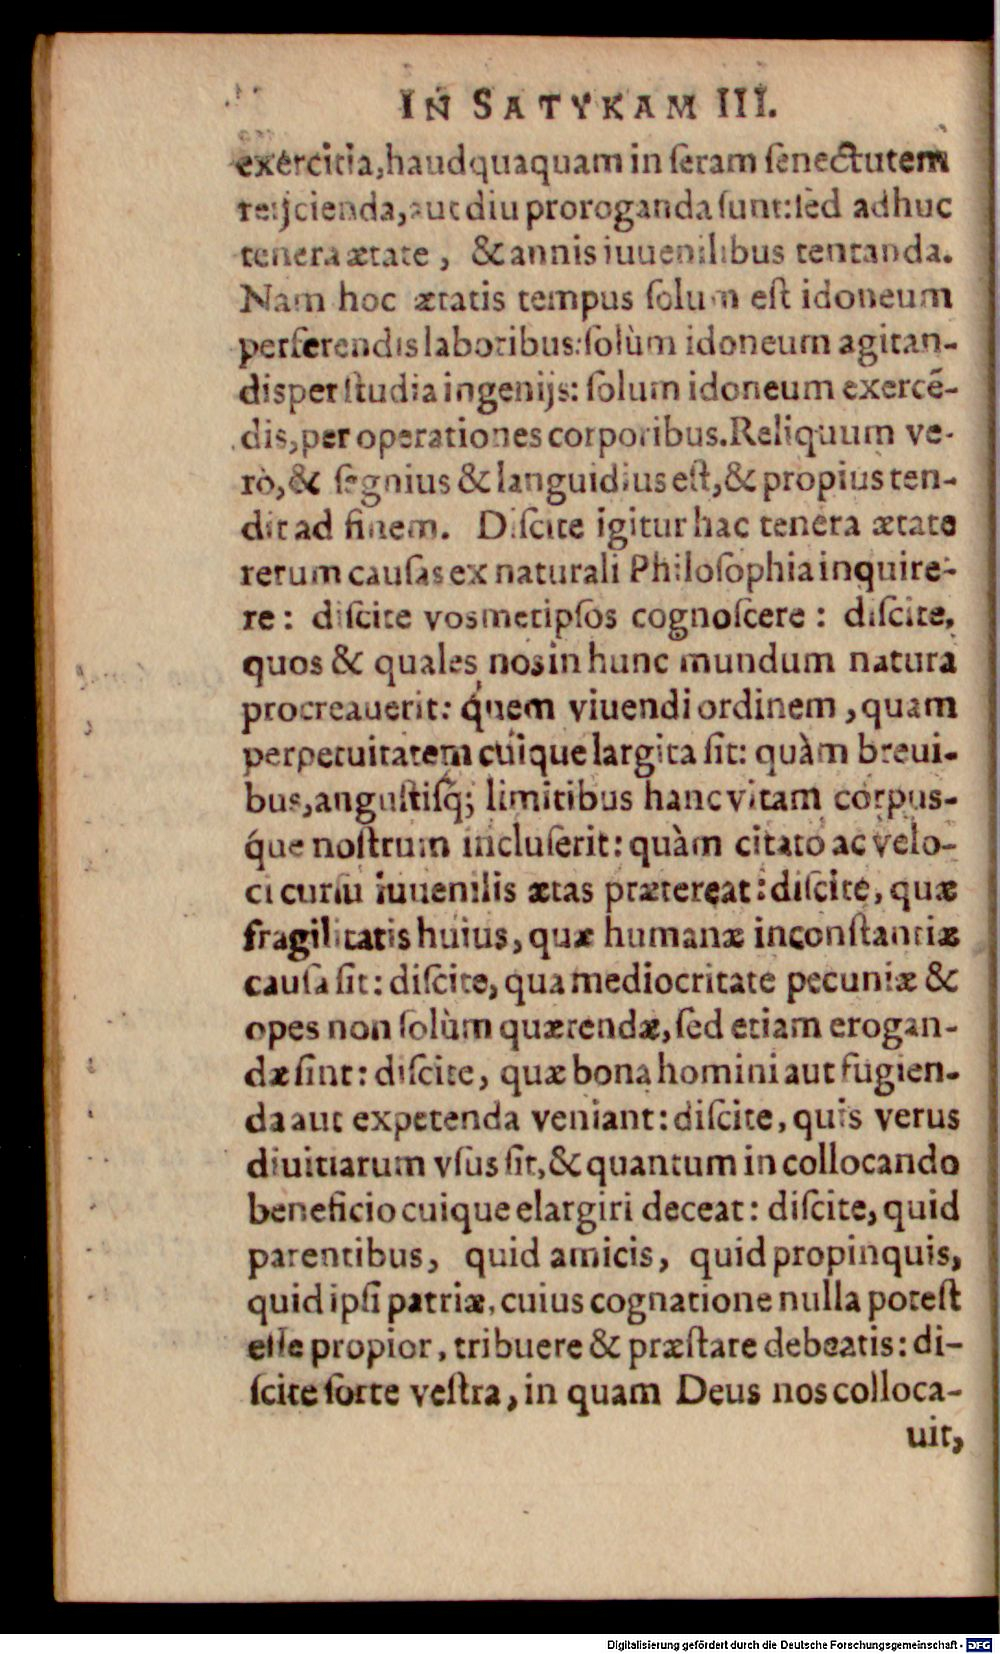 IN SATYRAM III.
exercitia, haudquaquam in ſeram ſenectutem
reijcienda, aut diu proroganda ſunt: ſed adhuc
tenera ætate, & annis iuuenilibus tentanda.
Nam hoc ætatis tempus ſolum eſt idoneum
perferendis laboribus: ſolùm idoneum agitan-
dis per ſtudia ingenijs: ſolum idoneum exercẽ-
dis, per operationes corporibus. Reliquum ve-
rò, & ſegnius & languidius eſt, & propius ten-
dit ad finem. Diſcite igitur hac tenera ætate
rerum cauſas ex naturali Philoſophia inquire-
re: diſcite voſmetipſos cognoſcere: diſcite,
quos & quales nos in hunc mundum natura
procreauerit: quem viuendi ordinem, quam
perpetuitatem cuique largita ſit: quàm breui-
bus, anguſtiſq; limitibus hanc vitam corpus-
q́ue noſtrum incluſerit: quàm citato ac velo-
ci curſu iuuenilis ætas prætereat: diſcite, quæ
fragilitatis huius, quæ humanæ inconſtantiæ
cauſa ſit: diſcite, qua mediocritate pecuniæ &
opes non ſolùm quærendæ, ſed etiam erogan-
dæ ſint: diſcite, quæ bona homini aut fugien-
da aut expetenda veniant: diſcite, quis verus
diuitiarum vſus ſit, & quantum in collocando
beneficio cuique elargiri deceat: diſcite, quid
parentibus, quid amicis, quid propinquis,
quid ipſi patriæ, cuius cognatione nulla poteſt
eſſe propior, tribuere & præſtare debeatis: di-
ſcite ſorte veſtra, in quam Deus nos colloca-
uit,
Digitalisierung gefördert durch die Deutsche Forschungsgemeinschaft - DFG